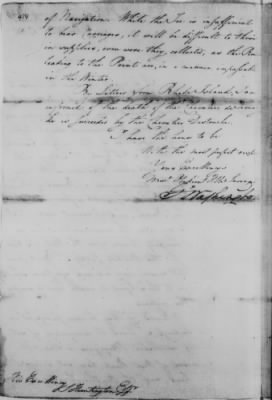 of Navigation. While the Ice is insufficient
to bear Carriages, it will be difficult to throw
in supplies, even were they collected, as the Roads
leading to the Point are, in a manner impassable
in the Winter.
By Letters from Rhode Island, I am
informed of the death of the Chevalier
he is succeeded by the Chevalier Destouche.
I have the honor to be
With the most perfect
Your Excellency's
Most Obedient & Hble Servant
G Washington
His Excellency
S Huntington Esqr